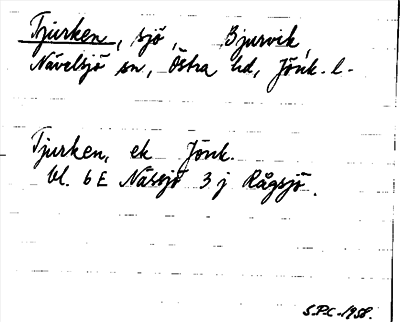 Tjurken, sjö, Bjurvik,
Nävelsjö sn, Östra hd, Jönk. l.
Tjurken, ek Jönk.
bl. 6 E Nässjö 3 j Rågsjö.
S.P.C. 1958.